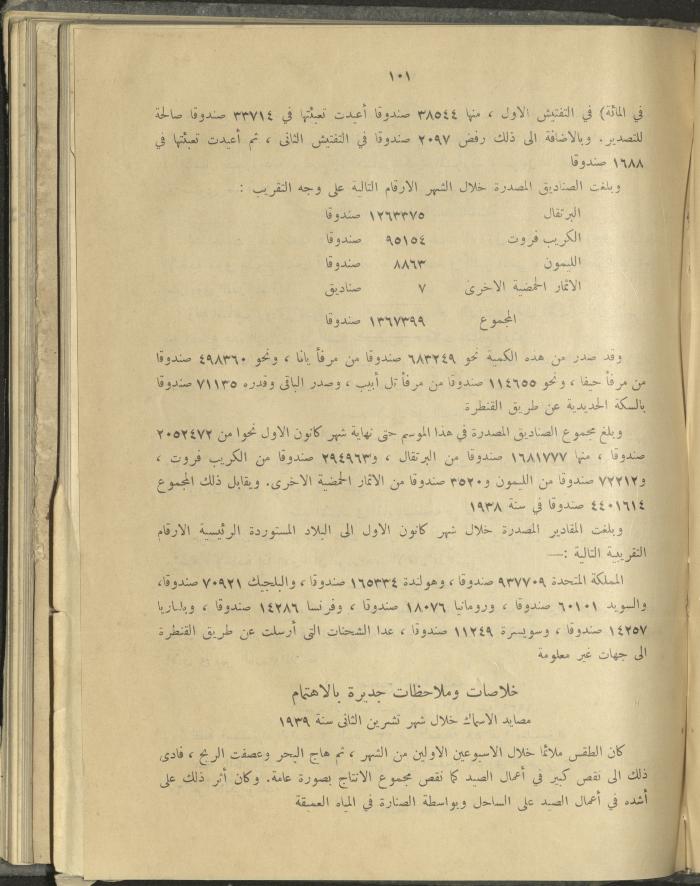 ١٠١
في المائة) في التفتيش الاول ، منها ٣٨٥٤٤ صندوقا أعيدت تعبئتها في ٣٣٧١٤ صندوقا صالحة
للتصدير. وبالاضافة الى ذلك رفض ٢٠٩٧ صندوقا في التفتيش الثانى ، ثم أعيدت تعبئتها في
١٦٨٨ صندوقا
وبلغت الصناديق المصدرة خلال الشهر الارقام التالية على وجه التقريب :
البرتقال ١٢٦٣٣٧٥ صندوقا
الكريب فروت ٩٥١٥٤ صندوقا
الليمون ٨٨٦٣ صندوقا
الاثمار الحمضية الاخرى ٧ صناديق
المجموع ١٣٦٧٣٩٩ صندوقا
وقد صدر من هذه الكمية نحو ٦٨٣٢٤٩ صندوقا من مرفأ يافا ، ونحو ٤٩٨٣٦٠ صندوقا
من مرفأ حيفا ، ونحو ١١٤٦٥٥ صندوقا من مرفأ تل أبيب ، وصدر الباقى وقدره ٧١١٣٥ صندوقا
بالسكة الحديدية عن طريق القنطرة
وبلغ مجموع الصناديق المصدرة في هذا الموسم حتى نهاية شهر كانون الاول نحوا من ٢٠٥٢٤٧٢
صندوقا ، منها ١٦٨١٧٧٧ صندوقا من البرتقال ، و٢٩٤٩٦٣ صندوقا من الكريب فروت ،
و٧٢٢١٢ صندوقا من الليمون و٣٥٢٠ صندوقا من الاثمار الحمضية الاخرى. ويقابل ذلك المجموع
٤٤٠١٦١٤ صندوقا في سنة ١٩٣٨
وبلغت المقادير المصدرة خلال شهر كانون الاول الى البلاد المستوردة الرئيسية الارقام
التقريبية التالية :—
المملكة المتحدة ٩٣٧٧٠٩ صندوقا ، وهولندة ١٦٥٣٣٤ صندوقا ، والبلجيك ٧٠٩٢١ صندوقا،
والسويد ٦٠١٠١ صندوقا ، ورومانيا ١٨٠٧٦ صندوقا ، وفرنسا ١٤٢٨٦ صندوقا ، وبلغاريا
١٤٢٥٧ صندوقا ، وسويسرة ١١٢٤٩ صندوقا ، عدا الشحنات التى أرسلت عن طريق القنطرة
الى جهات غير معلومة
خلاصات وملاحظات جديرة بالاهتمام
مصايد الاسماك خلال شهر تشرين الثانى سنة ١٩٣٩
كان الطقس ملائما خلال الاسبوعين الاولين من الشهر ، ثم هاج البحر وعصفت الريح ، فادى
ذلك الى نقص كبير في أعمال الصيد كما نقص مجموع الانتاج بصورة عامة. وكان أثر ذلك على
أشده في أعمال الصيد على الساحل وبواسطة الصنارة في المياه العميقة